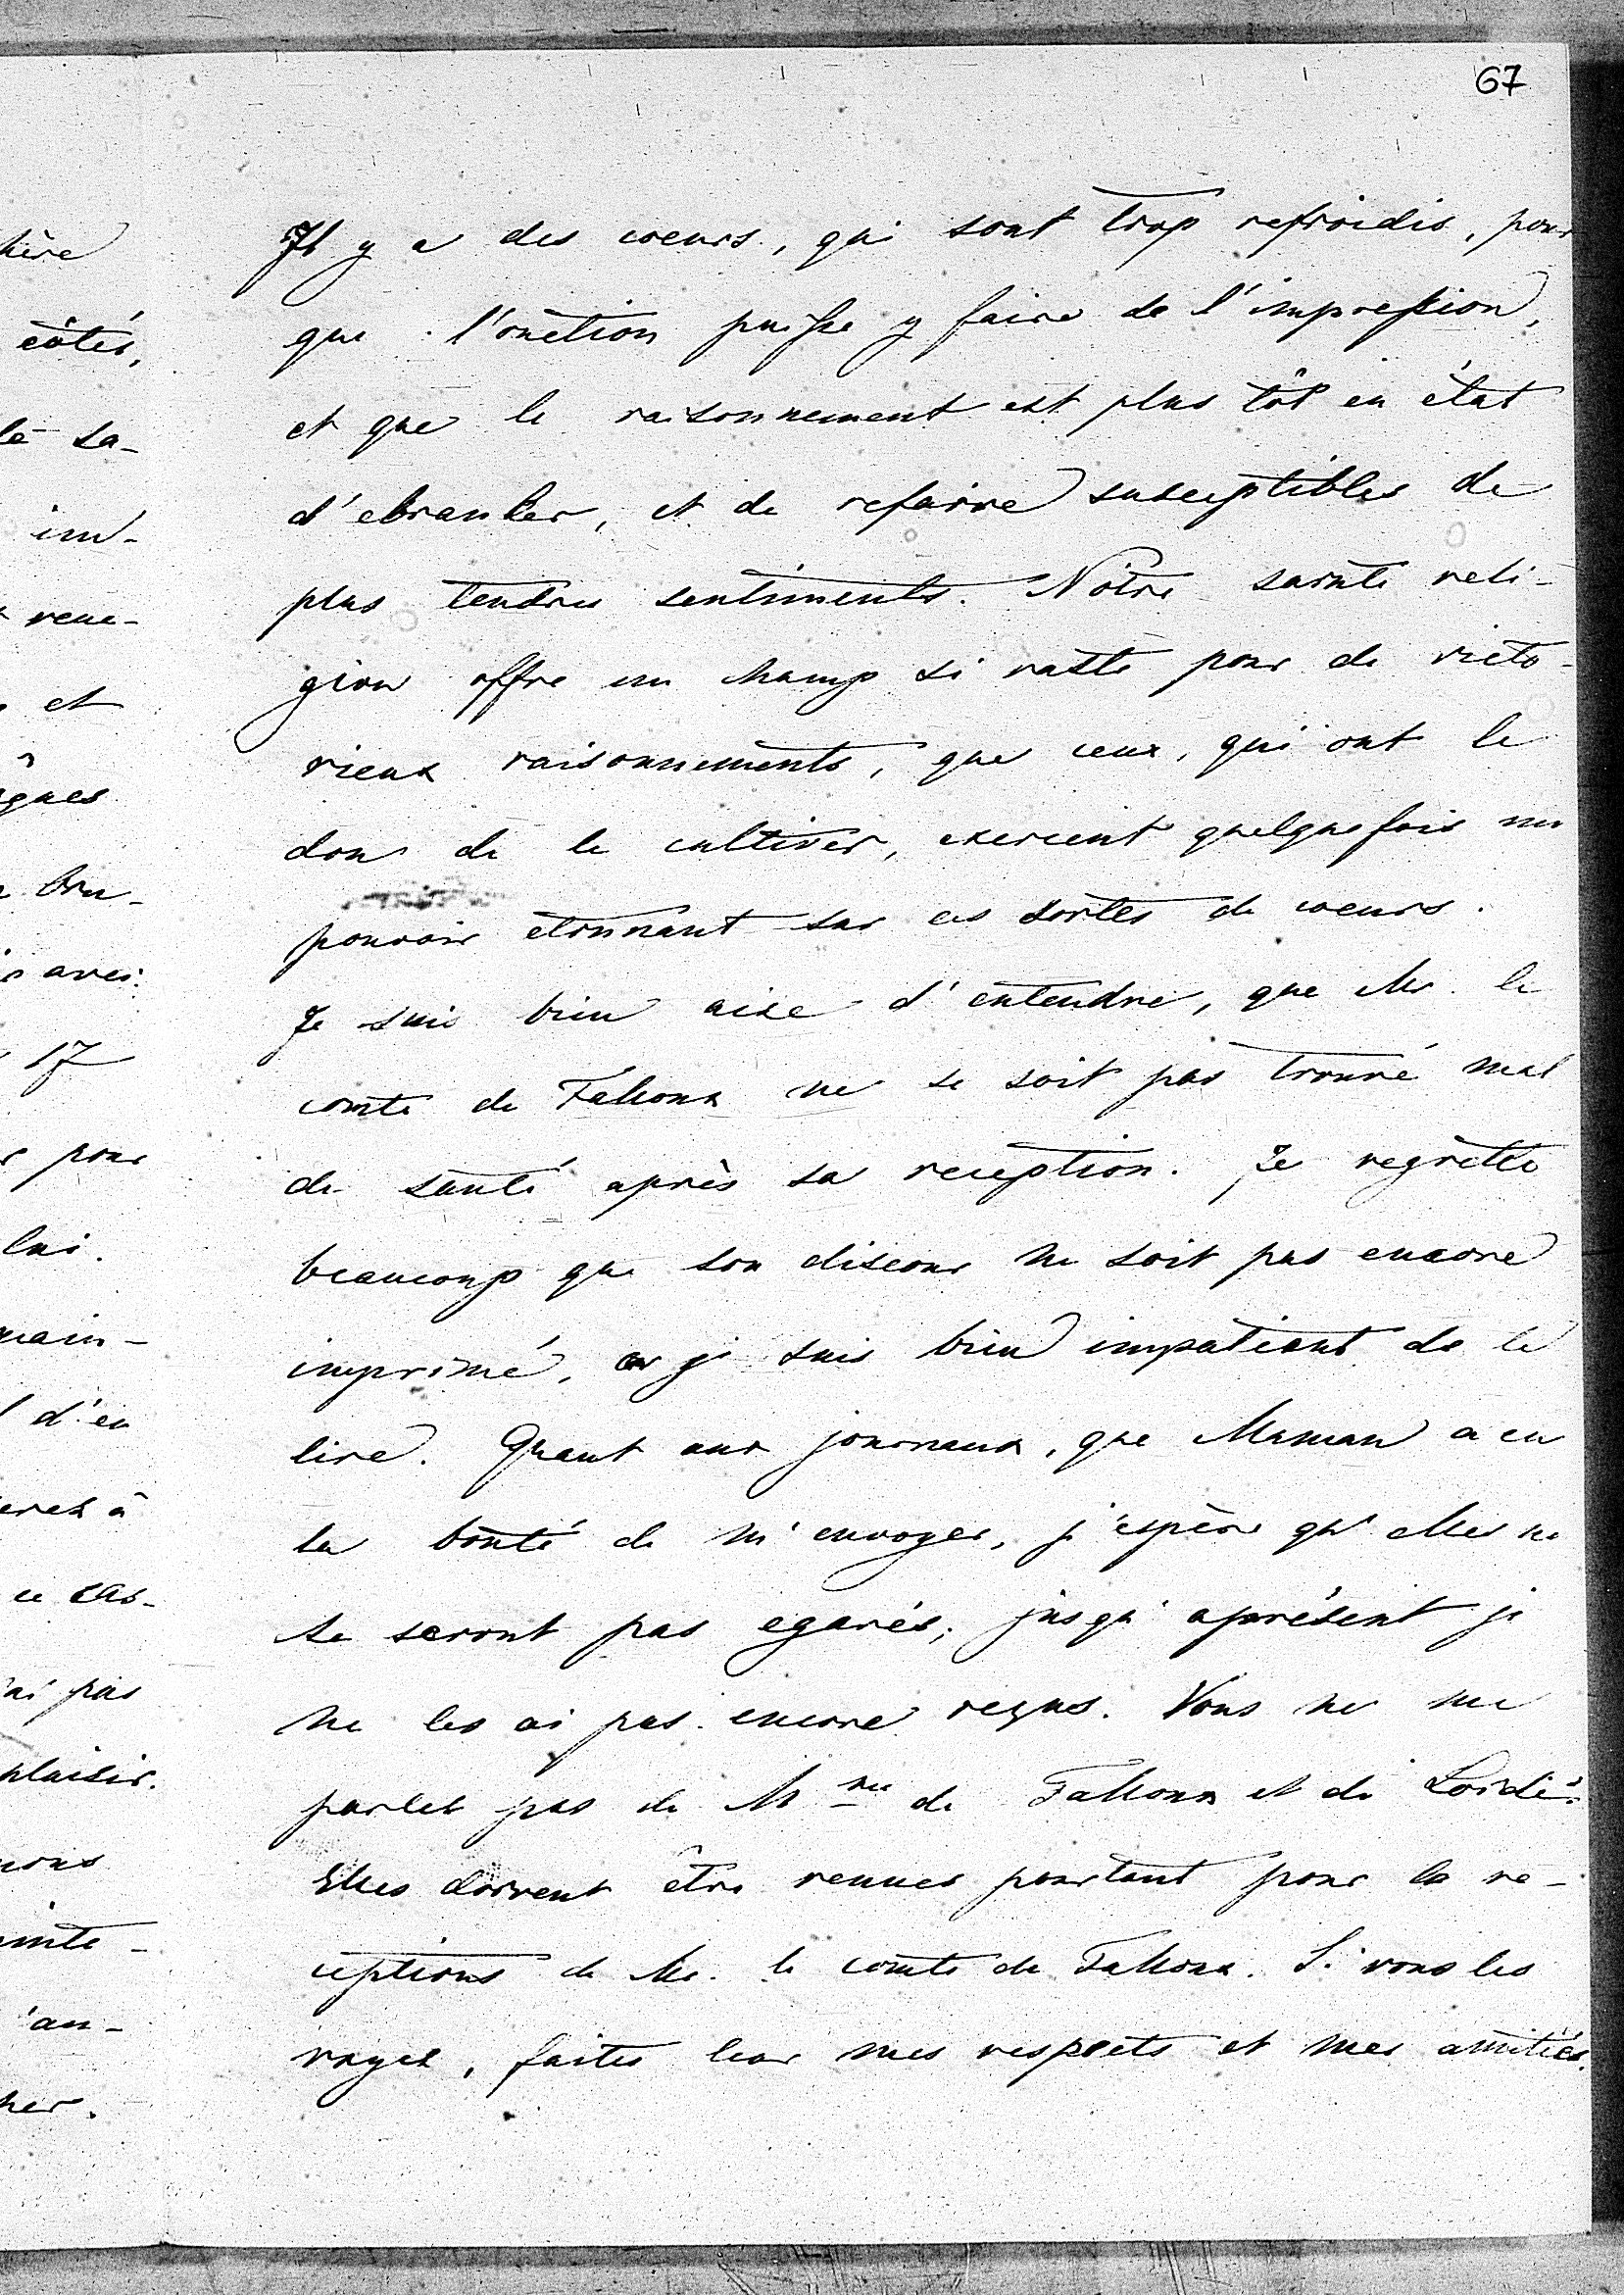 67
Il y a des coeurs, qui sont trop refroidis, pour
que l'onction puisse y faire de l'impression,
et que le raisonnement est plus tôt en état
d'ebranler, et de refaire susceptibles de
plus tendres sentiments. Nôtre sainte reli-
gion offre un champ si vaste pour de victo-
rieux raisonnements, que ceux, qui ont le
don de le cultiver, exercent quelquefois un
pouvoir étonnant sur ces sortes de coeurs.
Je suis bien aise d'entendre, que Mr. le
comte de Falloux ne se soit pas trouvé mal
de santé après sa reception. Je regrètte
beaucoup que son discour ne soit pas encore
imprimé, car je suis bien impatient de le
lire. Quant aux journeaux, que Maman a eu
la bonté de m'envoyer, j'espère qu'elles ne
se seront pas egarés; jusqu'aprésent je
ne les ai pas encore reçus. Vous ne me
parlez pas de Mme de Falloux et de Loïde.
Elles doivent être venues pourtant pour la ré-
ceptions de Mr. le comte de Falloux. Si vous les
voyez, faites leur mes respects et mes amitiés.
hère
côtés,
la-
im-
reve-
et
gues
bru-
avec
17
pour
lui.
main-
d'en
à
ce
ai pas
plaisir.
nous
inte-
an-
her.